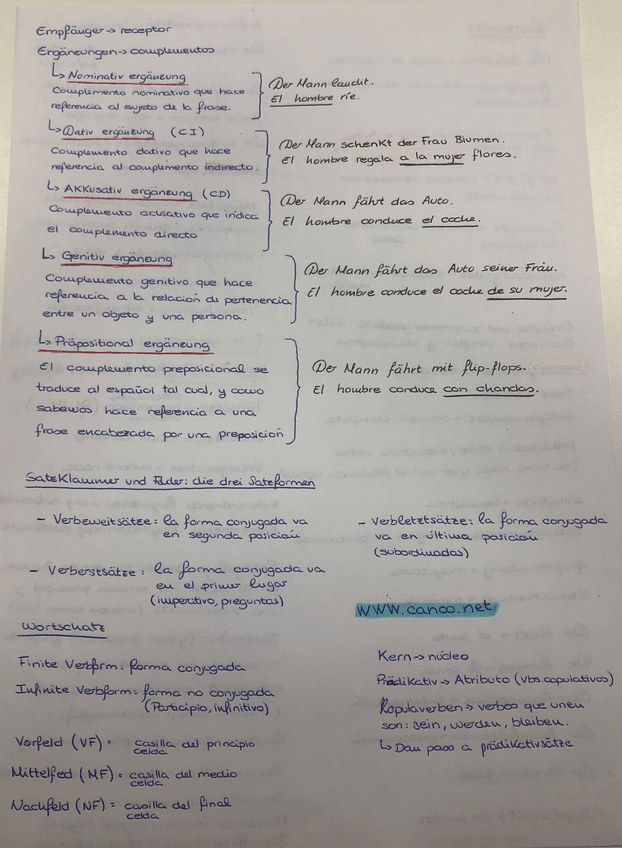 Empfänger → receptor
Ergänzungen → complementos
↳ Nominativ ergänzung
Complemento nominativo que hace
referencia al sujeto de la frase.
Der Mann laucht.
El hombre ríe.
↳ Dativ ergänzung (CI)
Complemento dativo que hace
referencia al complemento indirecto.
Der Mann schenkt der Frau Blumen.
El hombre regala a la mujer flores.
↳ AKKusativ ergänzung (CD)
Complemento acusativo que indica
el complemento directo
Der Mann fährt das Auto.
El hombre conduce el coche.
↳ Genitiv ergänzung
Complemento genitivo que hace
referencia a la relación de pertenencia
entre un objeto y una persona.
Der Mann fährt das Auto seiner Frau.
El hombre conduce el coche de su mujer.
↳ Präpositional ergänzung
El complemento preposicional se
traduce al español tal cual, y como
sabemos hace referencia a una
frase encabezada por una preposición
Der Mann fährt mit flip-flops.
El hombre conduce con chanclas.
SatzKlammer und Felder: die drei Satzformen
- Verbzweitsätze: la forma conjugada va
en segunda posición
- Verberstsätze: la forma conjugada va
en el primer lugar
(imperativo, preguntas)
- Verbletztsätze: la forma conjugada
va en última posición
(subordinadas)
www.canoo.net
Wortschatz
Finite Verbform: forma conjugada
Infinite Verbform: forma no conjugada
(Participio, infinitivo)
Vorfeld (VF) = casilla del principio
celda
Mittelfed (MF) = casilla del medio
celda
Nachfeld (NF) = casilla del final
celda
Kern → núcleo
Prädikativ → Atributo (vbs copulativos)
Kopulaverben → verbos que unen
son: sein, werden, bleiben.
↳ Dan paso a prädikativsätze